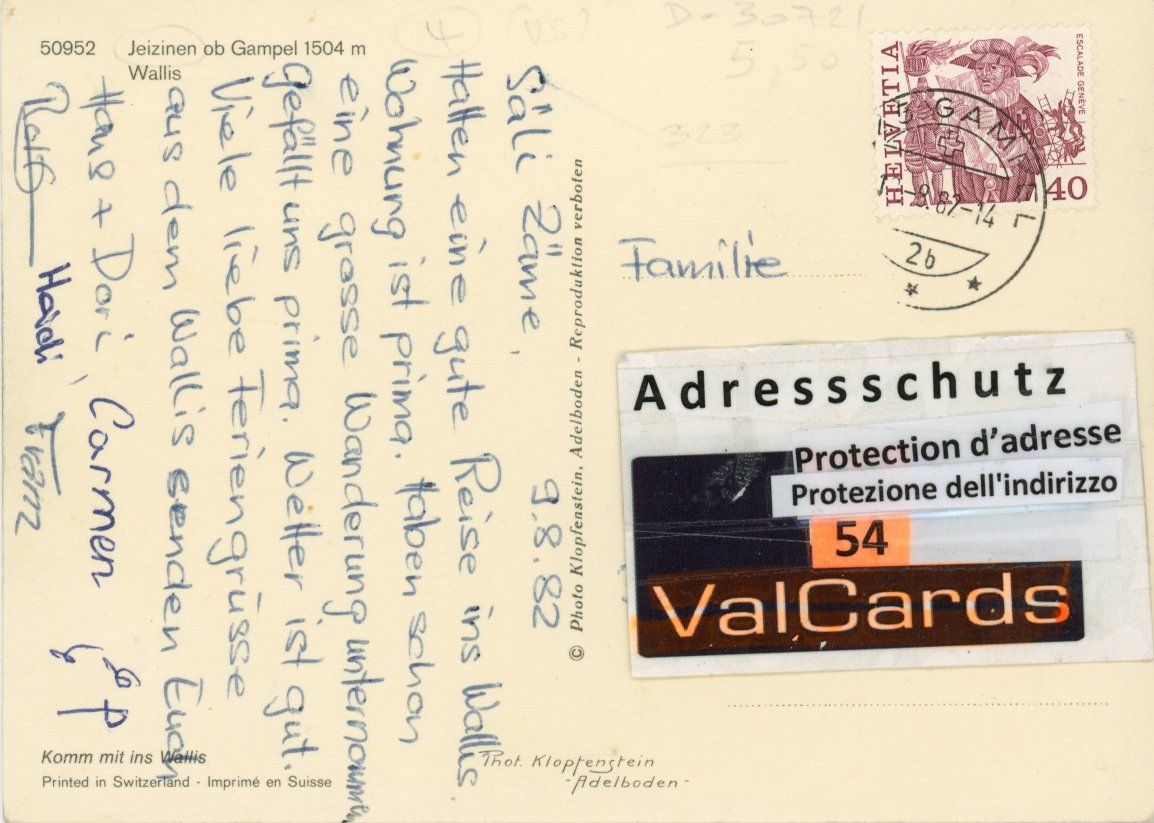 50952 Jeizinen ob Gampel 1504 m
Wallis
Säli Zäme, 9.8.82
Hatten eine gute Reise ins Wallis.
Wohnung ist prima. Haben schon
eine grosse Wanderung unternommen
Gefällt uns prima. Wetter ist gut.
Viele liebe Feriengrüsse
aus dem Wallis senden Euch
Hans + Dori Carmen
Ralf Hardi, Franz
Komm mit ins Wallis
Printed in Switzerland - Imprimé en Suisse
Phot. Klopfenstein
- Adelboden -
© Photo Klopfenstein, Adelboden - Reproduktion verboten
D-30721
5,50
323
HELVETIA
ESCALADE GENÈVE
40
GAMPEL
-9.8.82-14
2b
Familie
Adressschutz
Protection d'adresse
Protezione dell'indirizzo
54
ValCards